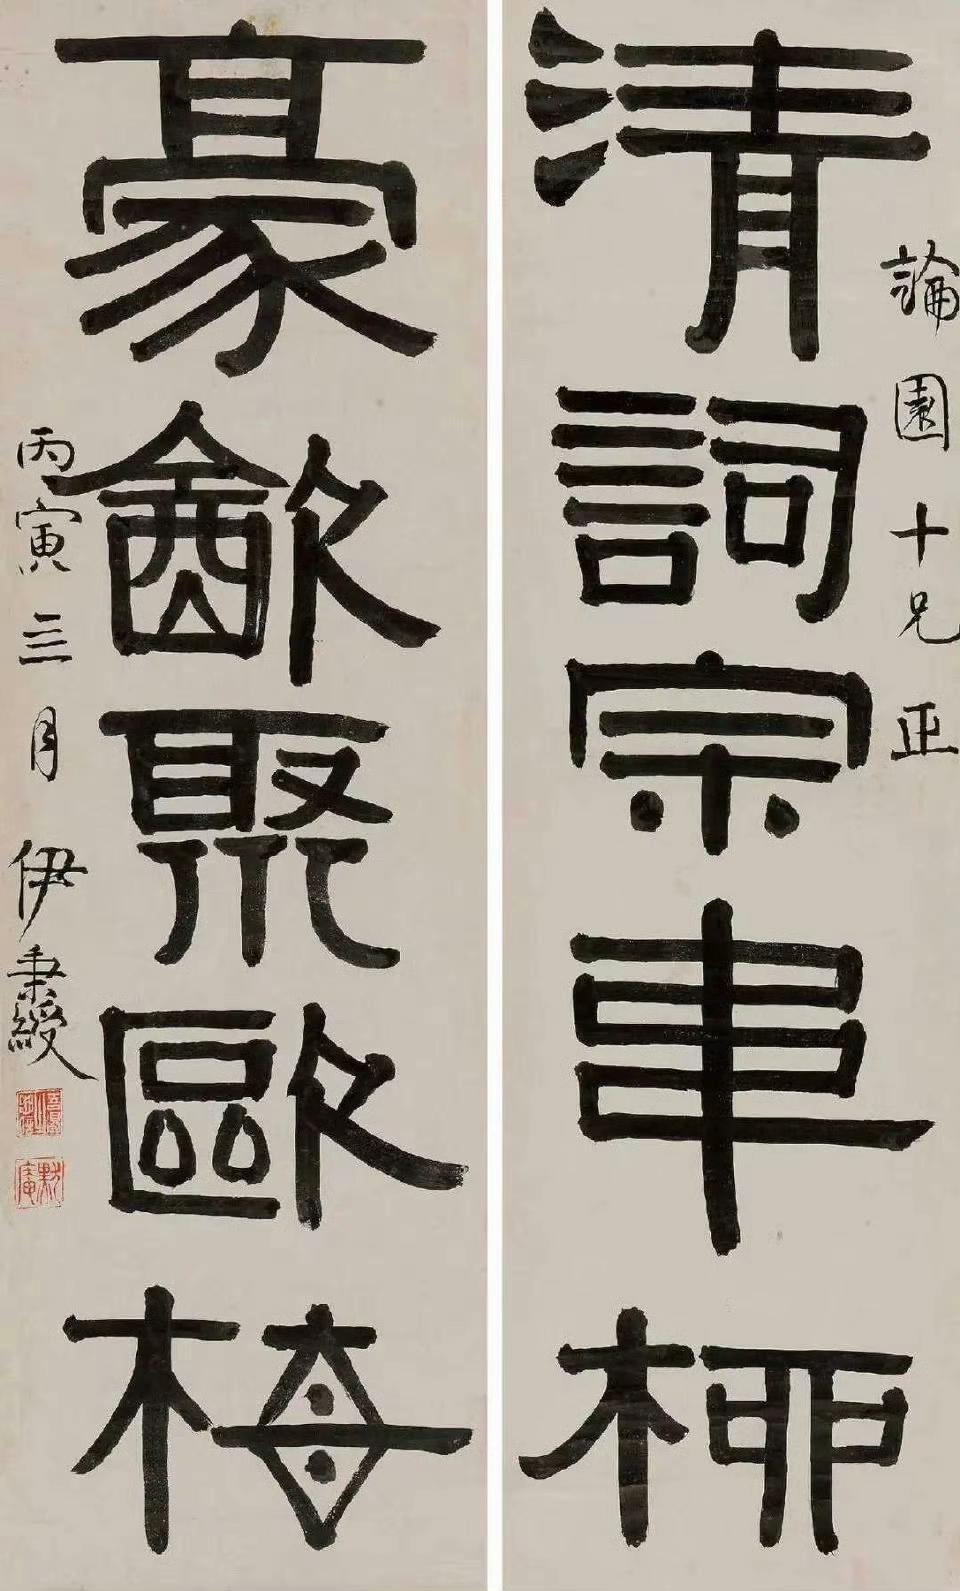 論園十兄正
清詞宗韋柳
豪飲聚歐梅
丙寅三月伊秉綬
默庵